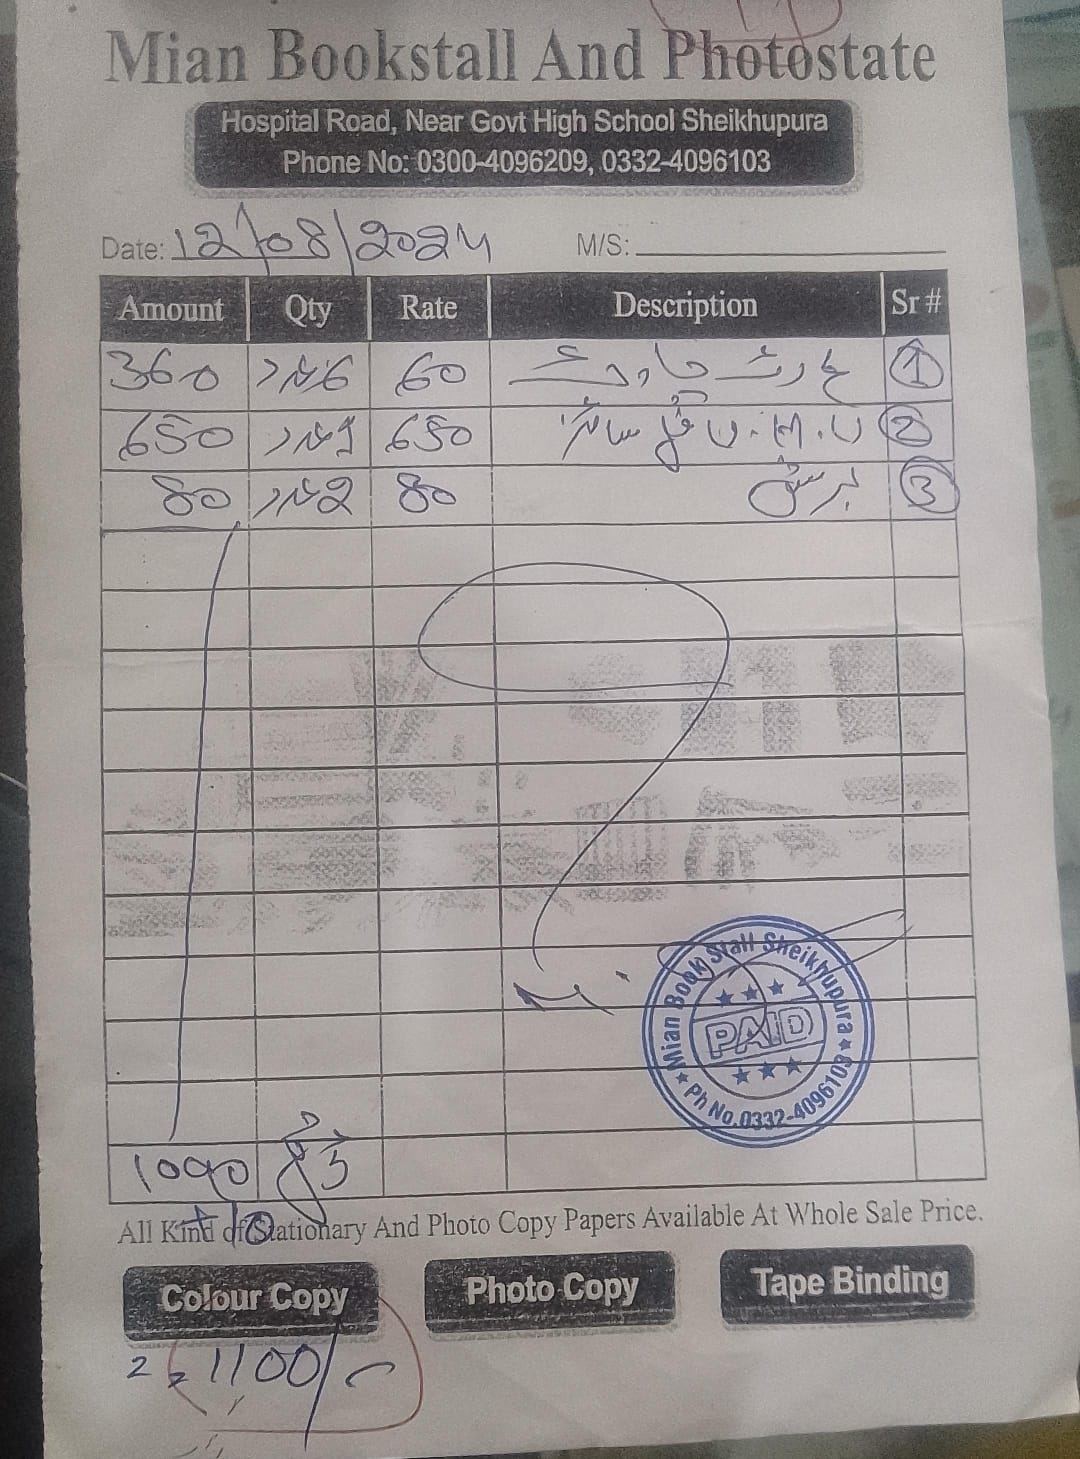 Mian Bookstall And Photostate
Hospital Road, Near Govt High School Sheikhupura
Phone No: 0300-4096209, 0332-4096103
Date: 12/08/2024 M/S:
Amount Qty Rate Description Sr #
360 6 عدد 60 چارٹ 1
650 1 عدد 650 فل سائز 2
80 2 عدد 80 برش 3
Mian Book Stall Sheikhupura
PAID
Ph No.0332-4096103
1090
All Kind of Stationary And Photo Copy Papers Available At Whole Sale Price.
+10
Colour Copy Photo Copy Tape Binding
1100/-